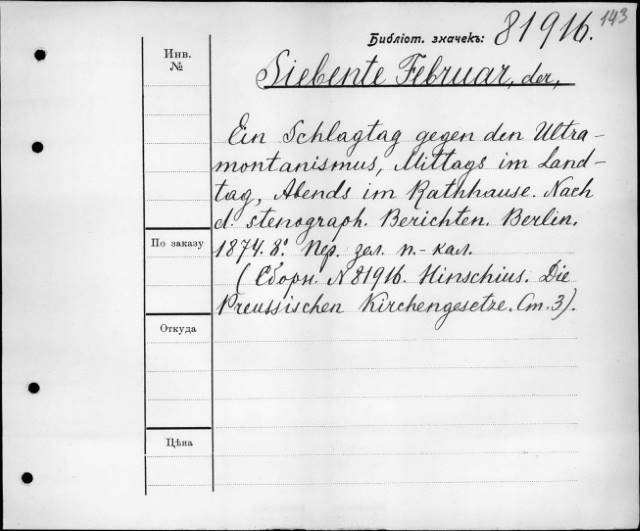 143
Библіот. значекъ: 81916.
Инв.
№
Siebente Februar, der,
Ein Schlagtag gegen den Ultra-
montanismus, Mittags im Land-
tag, Abends im Rathhause. Nach
d. stenograph. Berichten. Berlin.
По заказу
1874. 8º. Пер. зел. п.-кал.
(Сборн. №81916. Hinschius. Die
Preussischen Kirchengesetze. Ст. 3).
Откуда
Цѣна